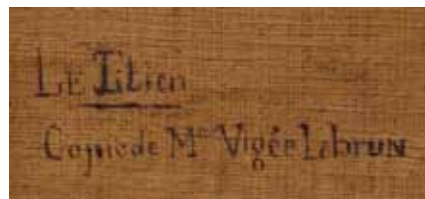 LE Titien
Copie de Mme Vigée Lebrun